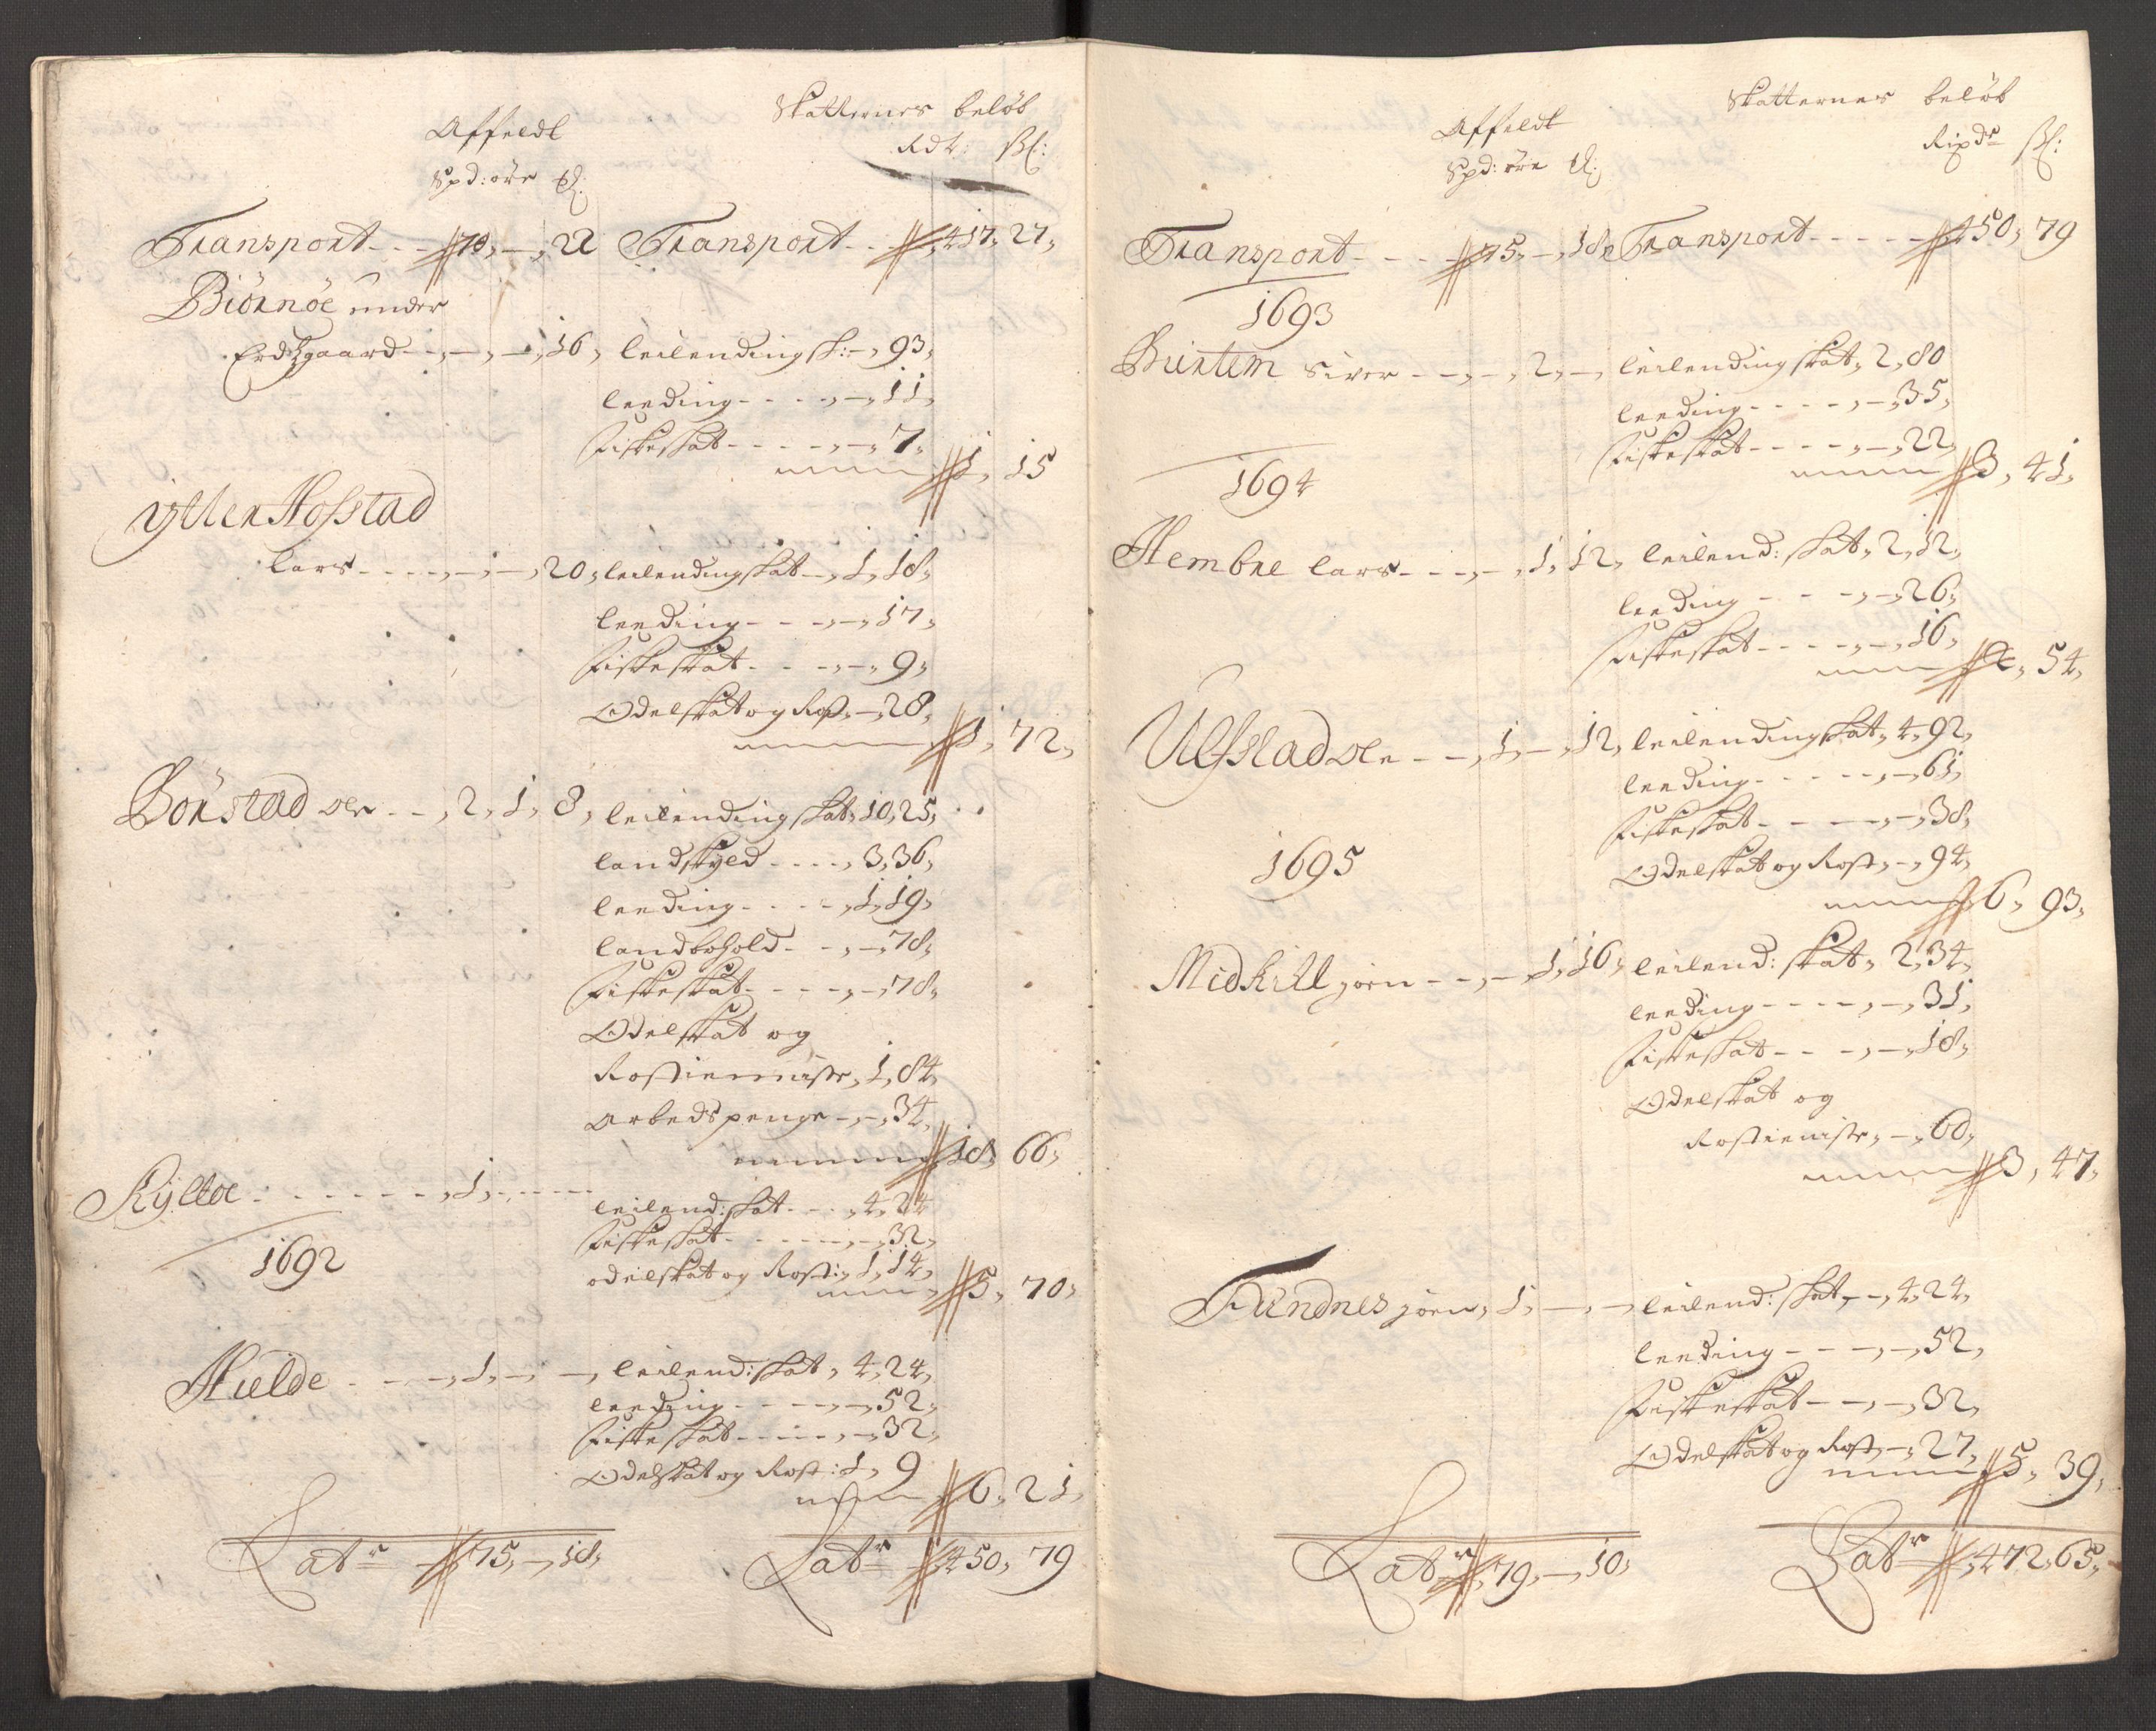 Affeldt
Skatternes beløb
Rdr: ß:
Spd: øre
Transport - - - 70, - , 22 Transport - - - 417, 27,
Biörnöe under
Erdtzgaard - , - , - , 16, leilending sk: - , 93,
leeding - - - - , - , 11,
Fiskeskat - - - - , - , 7,
1, 15
Ytter Hofstad
Lars - - - - , - , - , 20, leilending skat - , 1, 18,
leeding - - - , - , 17,
Fiskeskat - - - , - , 9,
Odelskat og Ross, - , 28,
1, 72,
Börstad Ole - - , 2, 1, 8, leilending skat, 10, 25,
landskyld - - - - , 3, 36,
leeding - - - - , 1, 19,
landbohold - - , - , 78,
Fiskeskat - - - - , - , 78,
Odelskat og
Rostieniste, 1, 84,
Arbedspenge - , - , 34,
18, 66,
Kyltoe - - - - - - , 1, - - - - -
leilend: skat - - - , 4, 24
1692
Fiskeskat - - - - - , - , 32,
odelskat og Rosti, 1, 14,
5, 70,
Hielde - - - - , 1, - , - , leilend: skat, 4, 24,
leeding - - - - , - , 52,
Fiskeskat - - - - - , - , 32,
Odelskat og Rost: 1, 9
6, 21,
Latr 75, - , 18, Latr 450, 79
Affeldt
Skatternes beløb
Rixdr ß:
Spd: øre
Transport - - - - 75, - , 18, Transport - - - - - 450, 79
1693
Birtem Siver - - , - , 2, - , leilending skat, 2, 80
leeding - - - - , - , 35,
Fiskeskat - - - - , - , 22,
3, 41,
1694
Hembre Lars - - , - , 1, 12, leilend: skat, 2, 12,
leeding - - - , - , 26,
Fiskeskat - - - - , - , 16,
2, 54,
Ulfstad Ole - - , 1, - , 12, leilending skat, 4, 92,
leeding - - - - - , - , 61,
Fiskeskat - - - - , - , 38,
1695
Odelskat og Rost, - , 94,
6, 93,
Midhill Joen - - , - , 1, 16, leilend: skat, 2, 34,
leeding - - - - , - , 31,
Fiskeskat - - - , - , 18,
Odelskat og
Rostieniste, - , 60,
3, 47,
Tundnes Joen, 1, - , - , leilend: skat, - , 4, 24,
leeding - - - , - , 52,
Fiskeskat - - , - , 32,
Odelskat og Rost, - , 27,
5, 39,
Latr 79, - , 10, Latr 472, 65,